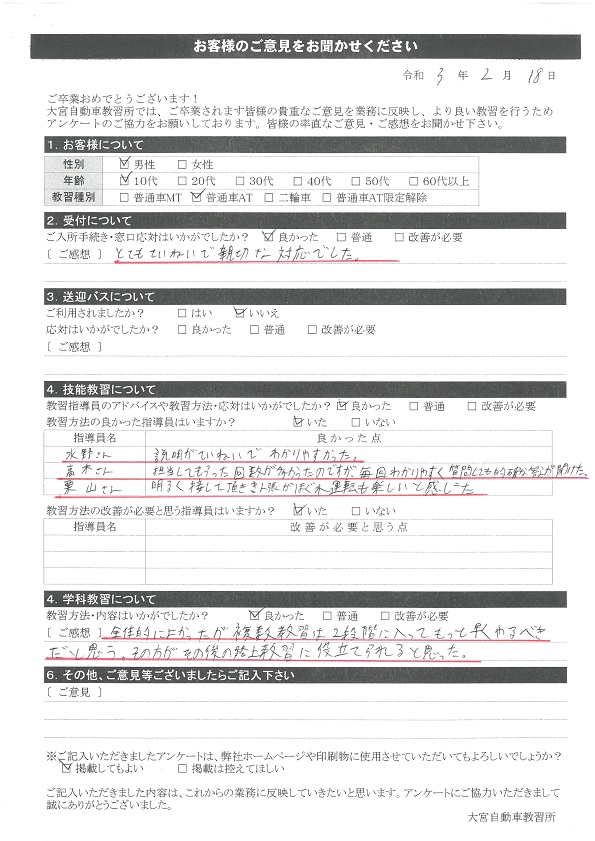 お客様のご意見をお聞かせください
令和 3 年 2 月 18 日
ご卒業おめでとうございます！
大宮自動車教習所では、ご卒業されます皆様の貴重なご意見を業務に反映し、より良い教習を行うため
アンケートのご協力をお願いしております。皆様の率直なご意見・ご感想をお聞かせ下さい。
1. お客様について
性別 ☑男性 □女性
年齢 ☑10代 □20代 □30代 □40代 □50代 □60代以上
教習種別 □普通車MT ☑普通車AT □二輪車 □普通車AT限定解除
2. 受付について
ご入所手続き・窓口応対はいかがでしたか？ ☑良かった □普通 □改善が必要
［ ご感想 ］ とてもていねいで親切な対応でした。
3. 送迎バスについて
ご利用されましたか？ □はい ☑いいえ
応対はいかがでしたか？ □良かった □普通 □改善が必要
［ ご感想 ］
4. 技能教習について
教習指導員のアドバイスや教習方法・応対はいかがでしたか？ ☑良かった □普通 □改善が必要
教習方法の良かった指導員はいますか？ ☑いた □いない
指導員名 良かった点
水野さん 説明がていねいでわかりやすかった。
高木さん 担当してもらった回数が多かったのですが、毎回わかりやすく質問しても的確な答えが聞けた。
栗山さん 明るく接して頂き緊張がほぐれ運転も楽しいと感じた
教習方法の改善が必要と思う指導員はいますか？ ☑いた □いない
指導員名 改善が必要と思う点
4. 学科教習について
教習方法・内容はいかがでしたか？ ☑良かった □普通 □改善が必要
［ ご感想 ］ 全体的によかったが複数教習は2段階に入ってもっと早くやるべき
だと思う。その方がその後の路上教習に役立てられると思った。
6. その他、ご意見等ございましたらご記入下さい
［ ご意見 ］
※ご記入いただきましたアンケートは、弊社ホームページや印刷物に使用させていただいてもよろしいでしょうか？
☑掲載してもよい □掲載は控えてほしい
ご記入いただきました内容は、これからの業務に反映していきたいと思います。アンケートにご協力いただきまして
誠にありがとうございました。
大宮自動車教習所